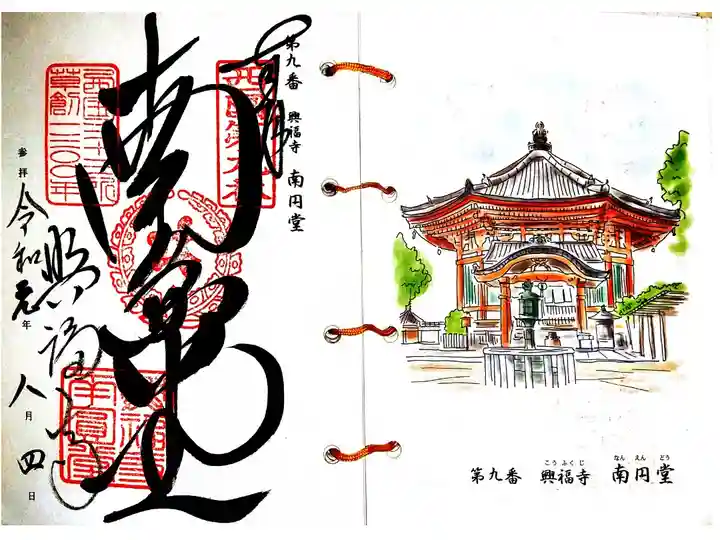 第九番 興福寺 南円堂
奉拝
南円堂
興福寺
参拝 令和元年八月四日
西国三十三所
草創一三〇〇年
こうふくじ なんえんどう
第九番 興福寺 南円堂